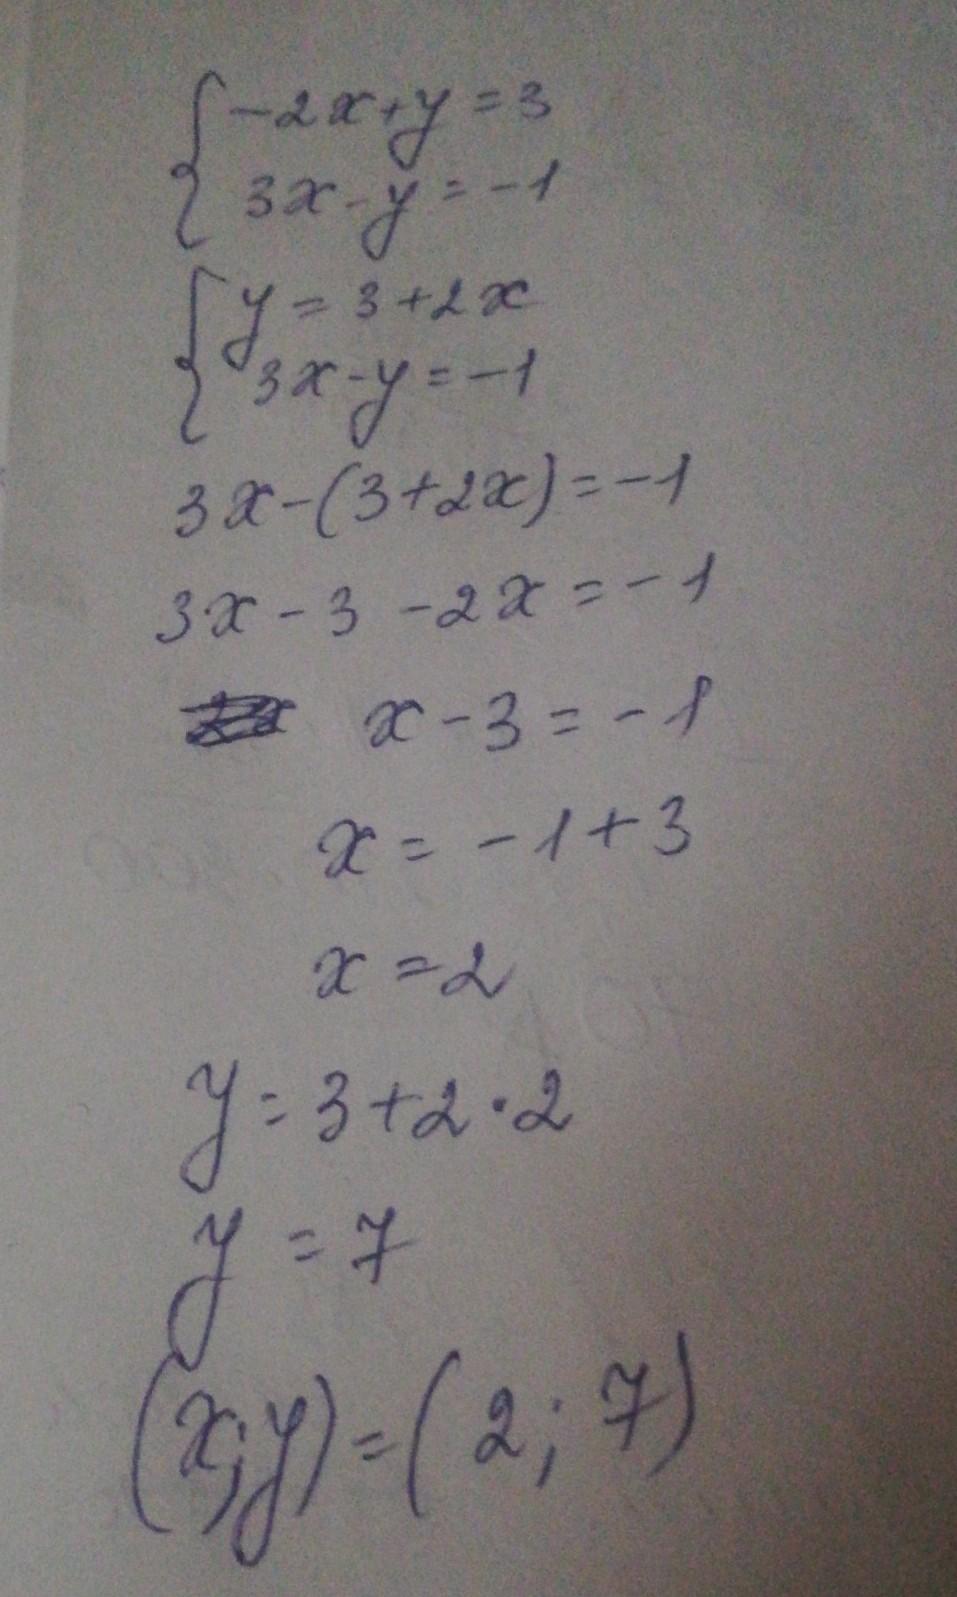 -2x+y=3
3x-y=-1
y=3+2x
3x-y=-1
3x-(3+2x)=-1
3x-3-2x=-1
x-3=-1
x=-1+3
x=2
y=3+2·2
y=7
(x;y)=(2;7)